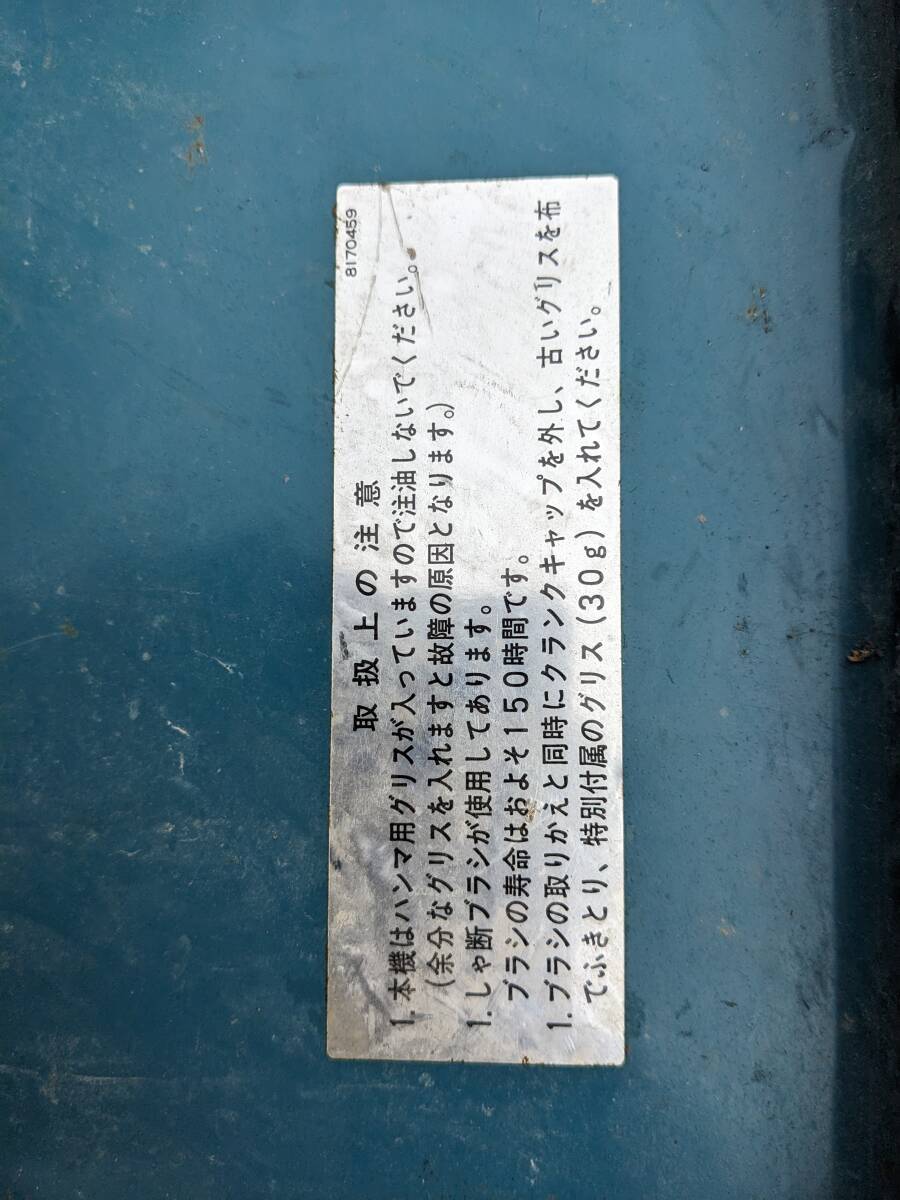 8170459
取扱上の注意
1. 本機はハンマ用グリスが入っていますので注油しないでください。
(余分なグリスを入れますと故障の原因となります。)
1. しゃ断ブラシが使用してあります。
ブラシの寿命はおよそ150時間です。
1. ブラシの取りかえと同時にクランクキャップを外し、古いグリスを布
でふきとり、特別付属のグリス(30g)を入れてください。